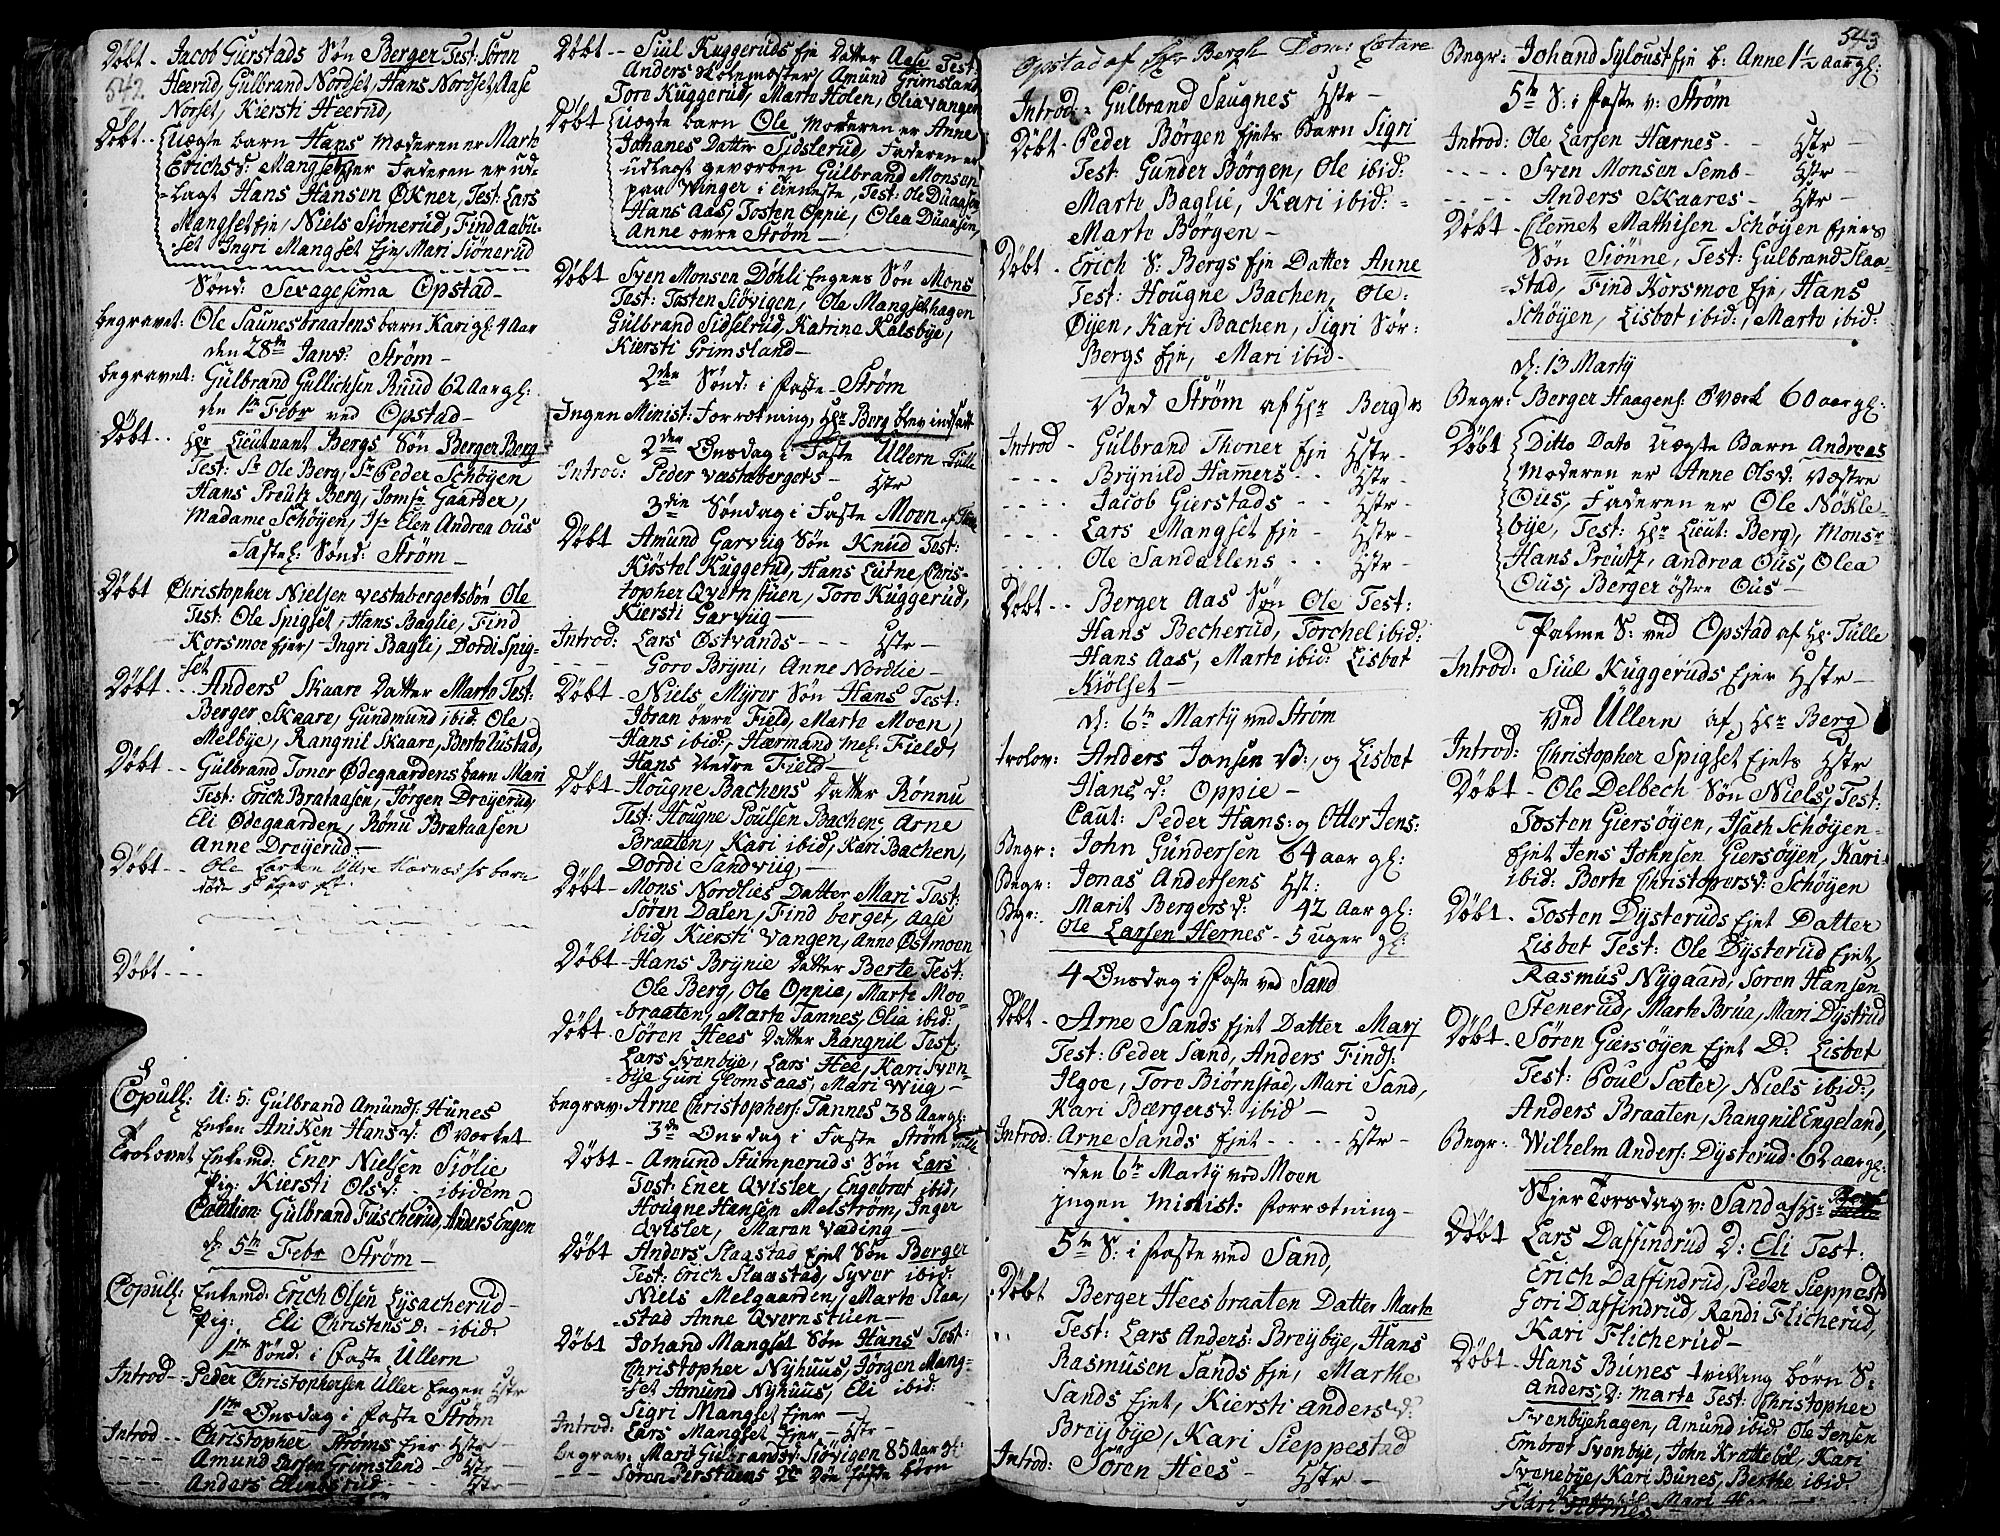 542.
Døbt - Jacob Gierstads Søn Berger Test: Sören
Heerud, Gulbrand Nordset, Hans Nordset, Aase
Norset, Kiersti Heerud,
Døbt - uægte barn Hans Moderen er Marte
Erichsd: Mangset Faderen er ud-
-lagt Hans Hansen Økner, Test: Lars
Mangset Eje, Niels Siönerud, Find Aabu-
-set Ingri Mangset Eje, Mari Siönerud
Sönd: Sexagesima Opstad -
begravet: Ole Saunesbraatens barn Kari gl: 4 Aar
den 28de Janv: Ström -
begravet: Gulbrand Gullichsen Ruud 62 Aar gl:
den 1te Febr ved Opstad -
Døbt - Hr Lieutnant Bergs Søn Berger Berg
Test: Sr Ole Berg, Sr Peder Schöyen
Hans Preutz Berg, Jomfr Gaarder,
Madame Schöyen, Jfr Elen Andrea Ous
Fastel: Sönd: Ström -
Døbt Christopher Nielsen Vestabergets Søn Ole
Test: Ole Spigset, Hans Baglie, Find
Korsmoe Ejer, Ingri Bagli, Dordi Spig-
set
Døbt - Anders Skaare Datter Marte Test:
Berger Skaare, Gundmund ibid: Ole
Melbye, Rangnil Skaare, Berte Lustad,
Døbt - Gulbrand Toner Ödegaardens barn Mari
Test: Erich Brataasen, Jörgen Dreyerud,
Eli Ödegaarden, Rönu Brataasen
Anne Dreyerud -
Døbt - Ole Larsen Hernæs barn
Døbt - - -
Copull: U: 5: Gulbrand Amunds: Hunes
Enken Aniken Hansd: Överket
Trolovet Enkemd: Ener Nielsen Siölie
Pig: Kiersti Olsd: ibidem
Caution: Gulbrand Fuscherud, Anders Engen
d: 5te Febr Ström -
Copull: Enkemd: Erich Olsen Lysacherud -
Pig: Eli Christensd: - ibid:
1te Sönd: i Faste Ullern
Introd - Peder Christophersen Uller Engen Hstr
1te Onsdag i Faste Ström
Introd - Christopher Ströms Ejer Hstr -
- - - Amund Larsen Grimsland - Hstr -
- - - Anders - Hstr -
Døbt - Siul Kuggeruds Eje Datter Aase Test:
Anders Holemoster, Amund Grimsland,
Tore Kuggerud, Marte Holen, Olia Vangen
Døbt uægte barn Ole Moderen er Anne
Johanes Datter Sidslerud, Faderen er
udlagt gevorben Gulbrand Monsen
paa Winger i tieneste, Test: Ole Duaasen
Hans Aas, Tosten Oppie, Olea Duaasen,
Anne övre Ström -
Døbt Sven Monsen Döhli Engens Søn Mons
Test: Tosten Siövigen, Ole Mangsethagen
Gulbrand Sidselrud, Katrine Kalsbye,
Kiersti Grimsland -
2den Sönd: i Faste - Ström
Ingen Minist: Forrætning, Hr Berg blev indsadt
2den Onsdag i Faste Ullern Tulle
Introd: Peder Vestabergets - Hstr
3die Söndag i Faste Moen af
Døbt Amund Garviig Søn Knud Test:
Kiöstel Kuggerud, Hans Lutne, Chris-
topher Qvernstuen, Tore Kuggerud,
Kiersti Garviig -
Introd: Lars Østvands - - Hstr -
- - - Goro Bryni, Anne Nordlie -
Døbt - Niels Myrer Søn Hans Test:
Jöran övre Field, Marte Moen,
Hans ibid:, Hærmand mel: Field,
Hans Nedre Field -
Døbt - Hougne Bachens Datter Rönnu
Test: Hougne Poulsen Bachen, Arne
Braaten, Kari ibid, Kari Bachen,
Dordi Sandviig -
Døbt - Mons Nordlies Datter Mari Test:
Sören Dalen, Find berget, Aase
ibid, Kiersti Vangen, Anne Østmoen
Døbt - Hans Brynie Datter Berte Test:
Ole Berg, Ole Oppie, Marte Moe-
-braaten, Marte Tannes, Olia ibid:
Døbt - Sören Hees Datter Rangnil Test:
Lars Svenbye, Lars Hee, Kari Sven-
-bye Guri Glomsaas, Mari Wiig -
begrav: Arne Christophers: Tannes 38 Aar gl:
3de Onsdag i Faste Ström Tulle
Døbt - Amund Stumperuds Søn Lars
Test: Ener Qvisler, Engebret ibid,
Hougne Hansen Melström, Inger
Qvisler, Maren Vading -
Døbt Anders Slaastad Ejet Søn Berger
Test: Erich Slaastad, Syver ibid:
Niels Melgaarden, Marte Slaa,
-stad Anne Qvernstuen -
Døbt Johand Mangset Søn Hans Test:
Christopher Nyhuus, Jörgen Mang-
-set Amund Nyhuus, Eli ibid:
Sigri Mangset Ejer -
Introd: Lars Mangset Ejer - Hstr -
begrav: Marit Gulbrandsd: Siövigen 85 Aar gl:
- - - Sören börn
543
Opstad af Hr Bergh Dom: Lætare
Introd: Gulbrand Saugnes Hstr -
Døbt - Peder Börgen Ejets Barn Sigri
Test: Gunder Börgen, Ole ibid:
Marte Baglie, Kari ibid: -
Marte Börgen -
Døbt - Erich S: Bergs Eje Datter Anne
Test: Hougne Bachen, Ole:
Öyen, Kari Bachen, Sigri Sör:
Bergs Eje, Mari ibid -
Ved Ström af Hr Berg
Introd - Gulbrand Thoner Eje Hstr -
- - - Brynild Hamers - - Hstr -
- - - Jacob Gierstads - - Hstr -
- - - Lars Mangset Eje - Hstr -
- - - Ole Sandallens - - Hstr -
Døbt - - Berger Aas Søn Ole Test:
Hans Becherud, Torchel ibid:
Hans Aas, Marte ibid: Lisbet
Kiölset -
d: 6te Martij ved Ström
trolov: Anders Jonsen B:, og Lisbet
Hansd: Oppie -
Caut: Peder Hans: og Otter Jens:
Begr: John Gundersen 64 aar gl:
Begr: Jonas Andersens Hst:
Marit Bergersd: 42 Aar gl:
Begr: Ole Larsen Hernes - 5 uger gl:
4 Onsdag i Faste ved Sand
Døbt - Arne Sands Ejet Datter Mari
Test: Peder Sand, Anders Finds:
Ilgoe, Tore Biörnstad, Mari Sand,
Kari Bærgersd: ibid -
Introd: Arne Sands Ejet - - - - Hstr -
den 6te Martij ved Moen
ingen Minist: Forrætning -
5te S: i Faste ved Sand,
Døbt Berger Heesbraaten Datter Marte
Test: Lars Anders: Breybye, Hans
Rasmusen Sands Eje, Marthe
Sands Ejet, Kiersti Andersd:
Breybye, Kari Sieppestad
Introd: Sören Hees - Hstr -
Begr: Johand Syloust Eje b: Anne 1½ aar gl:
5te S: i Faste v: Ström
Introd: Ole Larsen Hærnes - - Hstr -
- - - - Sven Monsen Semb - Hstr -
- - - - Anders Skaares - Hstr -
Døbt - Clemet Mathisen Schöyen Ejers
Søn Siönne, Test: Gulbrand Slaa-
-stad, Find Korsmoe Eje, Hans
Schöyen, Lisbet ibid:, Marte ibid:
d: 13 Martij
Begr: Berger Haagens: Överk 60 aar gl:
Døbt Ditto Dato Uægte Barn Andreas
Moderen er Anne Olsd: Væstre
Ous, Faderen er Ole Nökle-
bye, Test: Hr Lieut: Berg, Monsr
Hans Preutz, Andrea Ous, Olea
Ous, Berger östre Ous -
Palme S: ved Opstad af Hr: Tulle
Introd: Siul Kuggeruds Ejer Hstr -
Ved Ullern af Hr Berg
Introd: Christopher Spigset Ejets Hstr
Døbt - Ole Delbech Søn Niels, Test:
Tosten Giersöyen, Isach Schöyen-
Ejet Jens Johnsen Giersöyen, Kari
ibid: Berte Christopersd: Schöyen
Døbt - Tosten Dysteruds Ejet Datter
Lisbet Test: Ole Dysterud Ejet,
Rasmus Nygaard, Sören Hansen
Stenerud, Marte Brua, Mari Dystrud
Døbt - Sören Giersöyen Ejet D: Lisbet
Test: Poul Sæter, Niels ibid:,
Anders Braaten, Rangnil Engeland,
Begr: Wilhelm Anders: Dysterud 62 aar gl:
Skjer Torsdag v: Sand af Hr Berg
Døbt Lars Daffindrud D: Eli Test:
Erich Daffindrud, Peder Sieppestd
Gori Daffindrud, Randi Flicherud,
Kari Flicherud -
Døbt - Hans Bunes tvilling börn S:
Anders D: Marte Test: Christopher
Svenbyehagen, Amund ibid: Ole Jensen
Embret Svenbye, John Krattebøl, Kari
Svenebye, Kari Bunes, Berthe ibid:
Kari Mari